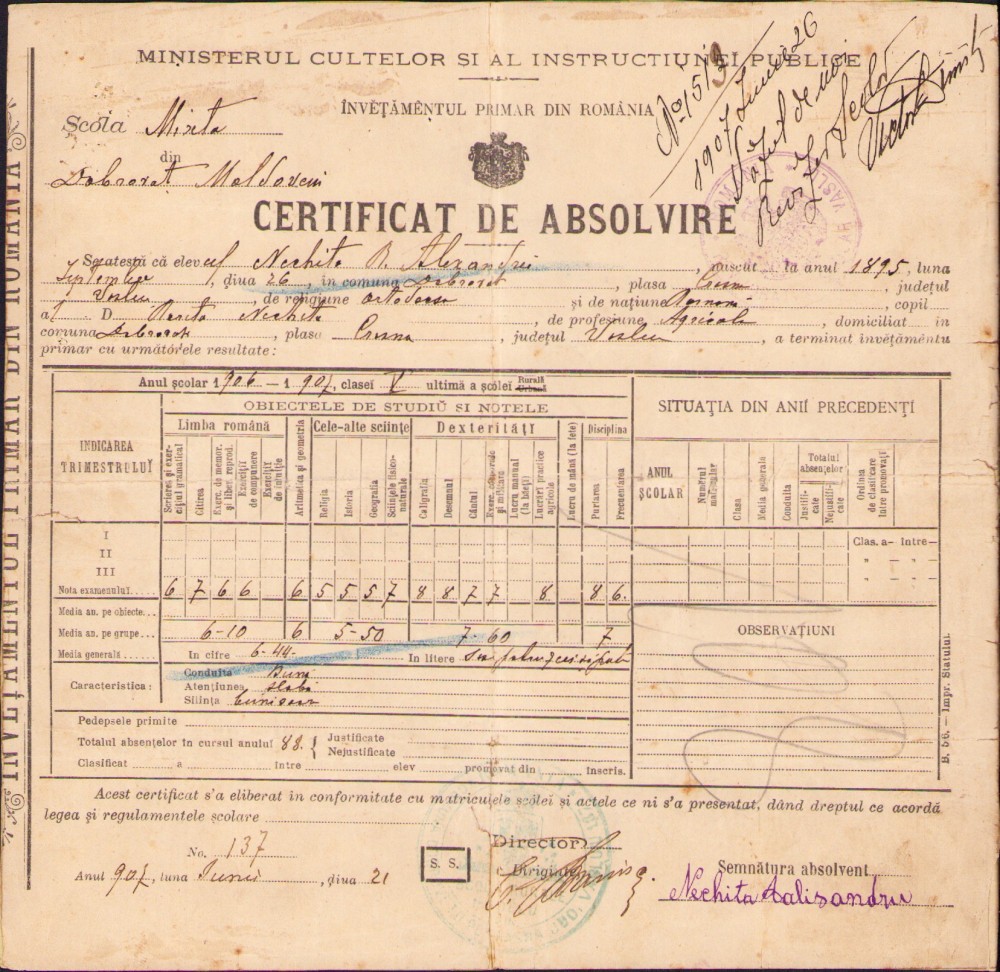 MINISTERUL CULTELOR SI AL INSTRUCTIUNEI PUBLICE
ÎNVĚTĂMÊNTUL PRIMAR DIN ROMÂNIA
No 1513
1907 Iunie 26
Văzut de noi
Școla Mixta
din
Dobrovăț Moldoveni
CERTIFICAT DE ABSOLVIRE
Se atestă că elevul Nechita R. Alexandru, născut la anul 1895, luna
Septembre, diua 26, in comuna Dobrovăț, plasa Crasna, județul
Vaslui, de religiune ortodoxa și de națiune Română, copil
al D Nechita, de profesiune Agricola, domiciliat în
comuna Dobrovat, plasa Crasna, județul Vaslui, a terminat învețămêntu
primar cu următórele resultate:
Anul școlar 1906 — 1907, clasei V ultimă a școlei Rurală Urbană
OBIECTELE DE STUDIŬ SI NOTELE
SITUAȚIA DIN ANII PRECEDENȚI
INDICAREA TRIMESTRULUĬ
Limba română
Cele-alte sciințe
Dexterități
Disciplina
Scrierea și exercițiul gramatical
Citirea
Exerc. de memor. și liber. reprod.
Exerciții de compunere
Exerciții de intuiție
Aritmetica și geometria
Religia
Istoria
Geografia
Sciințele fisico-naturale
Caligrafia
Desemnul
Cântul
Exerc. corporale și militare
Lucru manual (la băeți)
Lucrări practice agricole
Lucru de mână (la fete)
Purtarea
Frecuentarea
ANUL ȘCOLAR
Numĕrul matricular
Clasa
Media generala
Conduita
Totalul absențelor
Justificate
Nejustificate
Ordinea de clasificare între promovați
I
II
III
Clas. a- Intre-
Nota examenului 6 7 6 6 6 5 5 5 7 8 8 7 7 8 8 6.
Media an. pe obiecte
Media an. pe grupe 6-10 6 5-50 7-60 7
Media generală In cifre 6-44- In litere
OBSERVAȚIUNI
Caracteristica:
Conduita Bună
Atențiunea slaba
Sliința
Pedepsele primite
Totalul absențelor în cursul anului 88. { Justificate
Nejustificate
Clasificat a între elev promovat din inscris.
B. 56. — Impr. Statului.
INVEȚAMENTUL PRIMAR DIN ROMANIA
Acest certificat s'a eliberat in conformitate cu matriculele școlei și actele ce ni s'a presentat, dând dreptul ce acordă
legea și regulamentele școlare
No. 137
Anul 907, luna Iunie, diua 21
S. S.
Director
Diriginte
Semnătura absolvent
Nechita Aalisandru